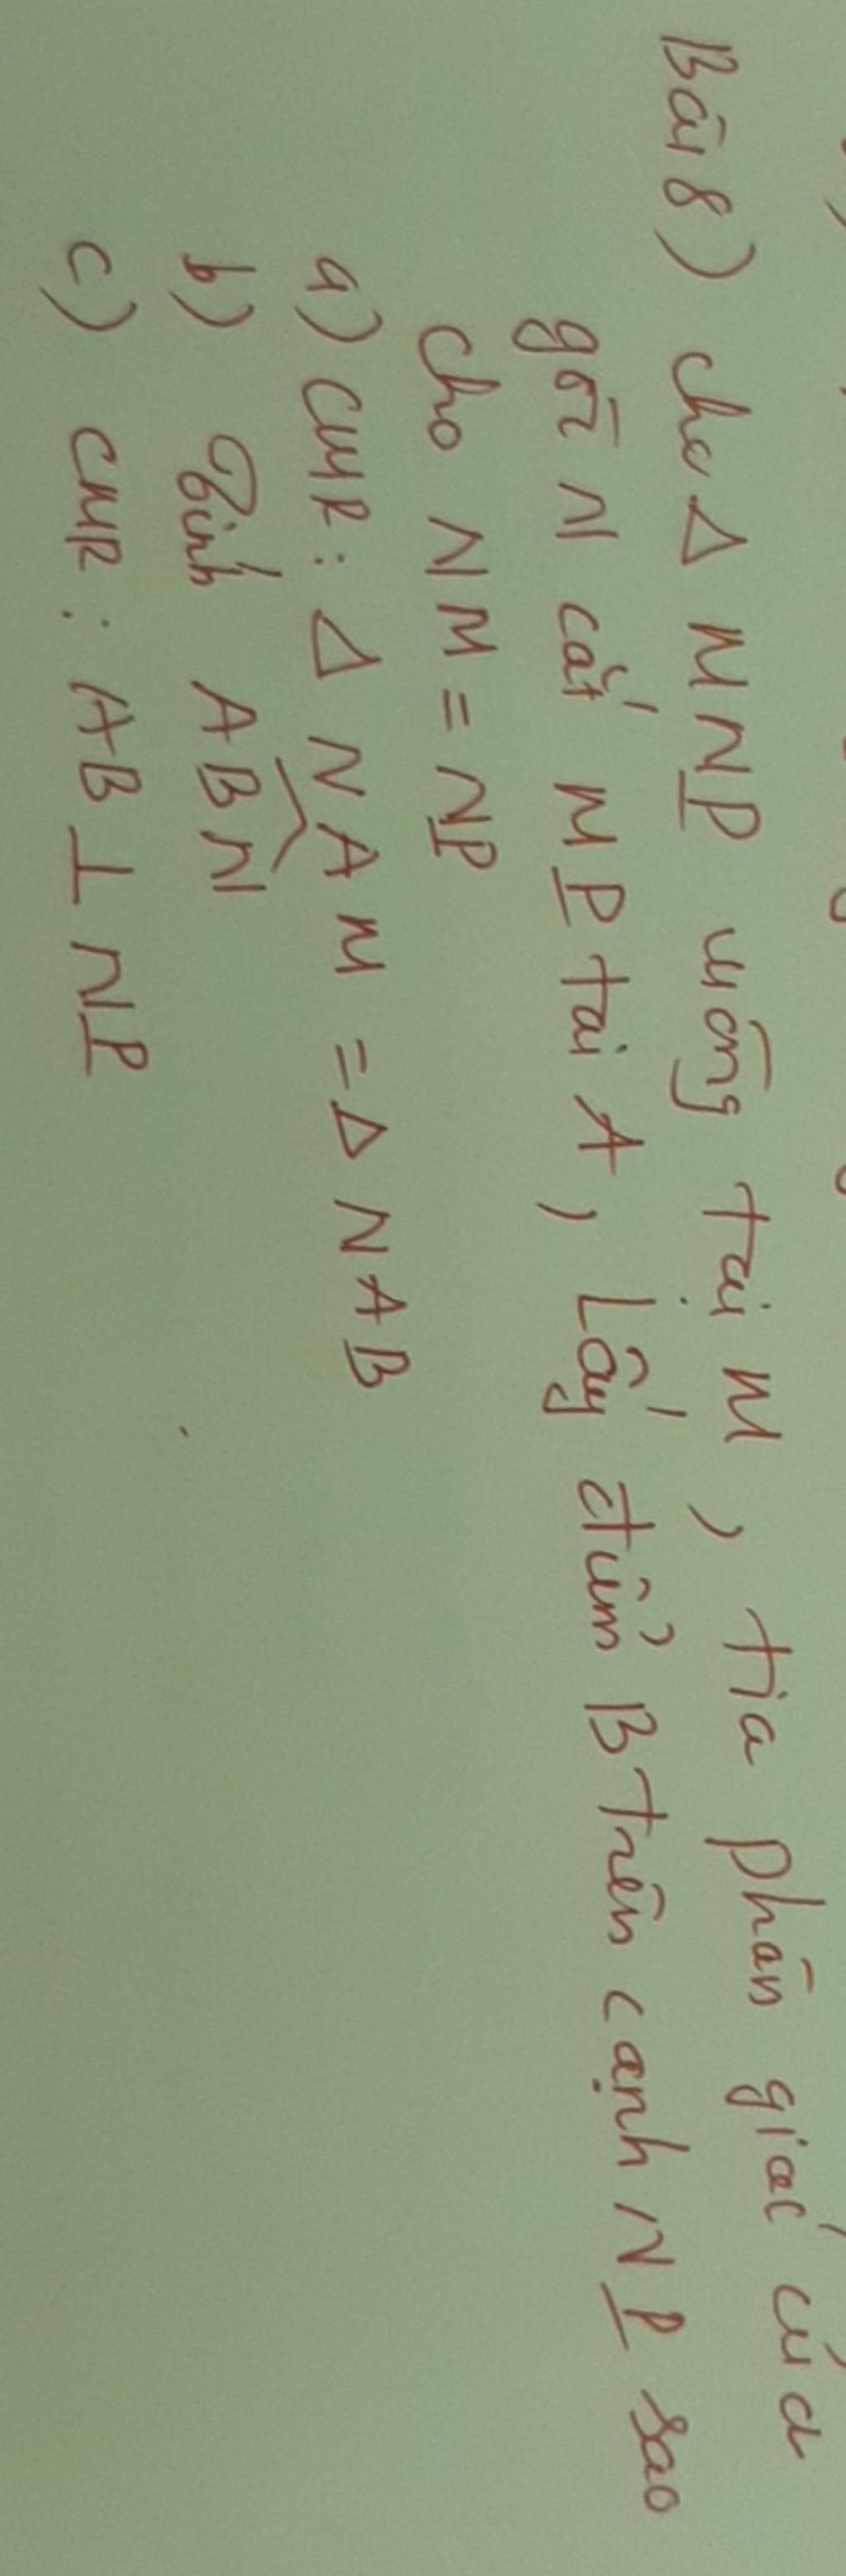 Bài 8) cho Δ MNP vuông tại M, tia phân giác của
góc N cắt MP tại A, Lấy điểm B trên cạnh NP sao
cho NM = NP
a) CMR: Δ NAM = Δ NAB
b) Tính ABN
c) CMR: AB ⊥ NP